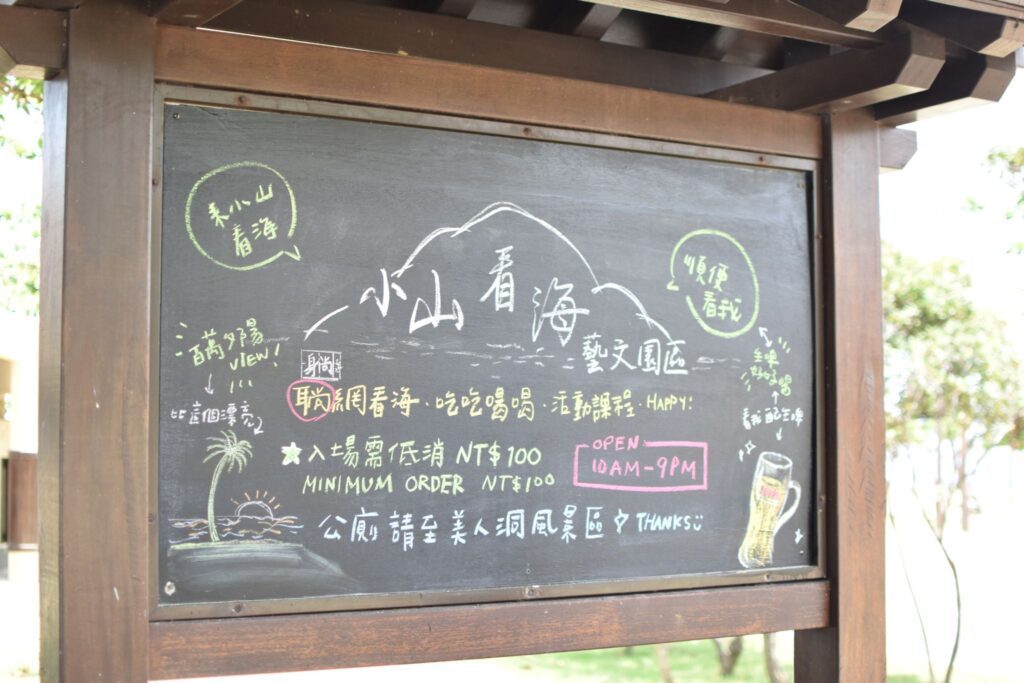 來小山
看海
小山看海
藝文園區
順便
看我
百萬夕陽
VIEW!
比這個漂亮
生啤
好好喝
看我自己生啤
網看海·吃吃喝喝·活動課程·HAPPY!
★入場需低消 NT$100
MINIMUM ORDER NT$100
OPEN:
10AM-9PM
公廁請至美人洞風景區 THANKS